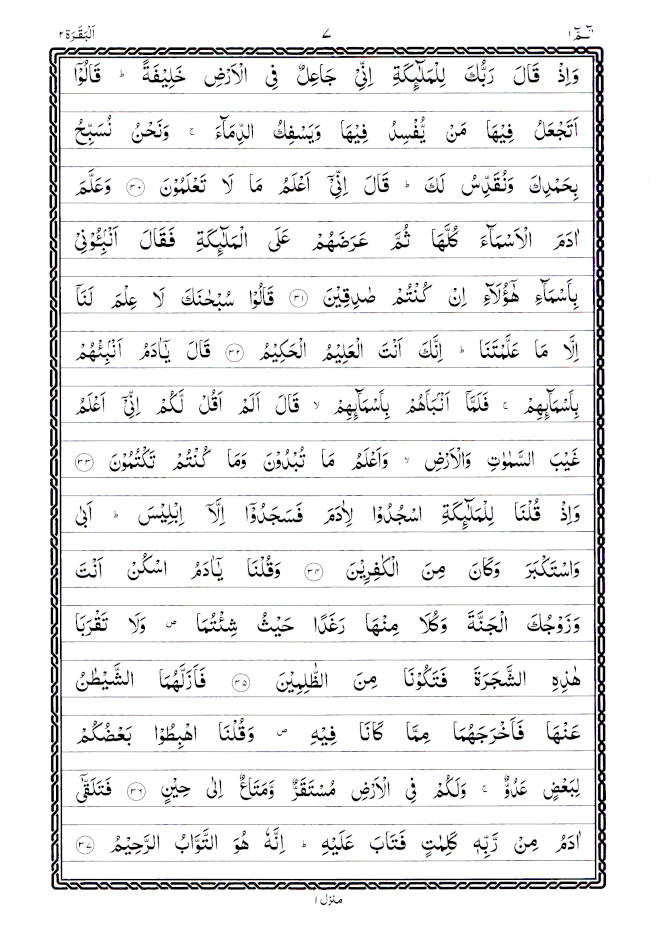 الٓـمّٓ ١ ٧ اَلْبَقَرَة ٢
وَاِذْ قَالَ رَبُّكَ لِلْمَلٰٓئِكَةِ اِنِّيْ جَاعِلٌ فِي الْاَرْضِ خَلِيْفَةً ؕ قَالُوْٓا
اَتَجْعَلُ فِيْهَا مَنْ يُّفْسِدُ فِيْهَا وَيَسْفِكُ الدِّمَآءَ ۚ وَنَحْنُ نُسَبِّحُ
بِحَمْدِكَ وَنُقَدِّسُ لَكَ ؕ قَالَ اِنِّيْٓ اَعْلَمُ مَا لَا تَعْلَمُوْنَ ٣٠ وَعَلَّمَ
اٰدَمَ الْاَسْمَآءَ كُلَّهَا ثُمَّ عَرَضَهُمْ عَلَى الْمَلٰٓئِكَةِ فَقَالَ اَنْۢبِـُٔوْنِيْ
بِاَسْمَآءِ هٰٓؤُلَآءِ اِنْ كُنْتُمْ صٰدِقِيْنَ ٣١ قَالُوْا سُبْحٰنَكَ لَا عِلْمَ لَنَآ
اِلَّا مَا عَلَّمْتَنَا ؕ اِنَّكَ اَنْتَ الْعَلِيْمُ الْحَكِيْمُ ٣٢ قَالَ يٰٓاٰدَمُ اَنْۢبِئْهُمْ
بِاَسْمَآئِهِمْ ۚ فَلَمَّآ اَنْۢبَاَهُمْ بِاَسْمَآئِهِمْ ۙ قَالَ اَلَمْ اَقُلْ لَّكُمْ اِنِّيْٓ اَعْلَمُ
غَيْبَ السَّمٰوٰتِ وَالْاَرْضِ ۙ وَاَعْلَمُ مَا تُبْدُوْنَ وَمَا كُنْتُمْ تَكْتُمُوْنَ ٣٣
وَاِذْ قُلْنَا لِلْمَلٰٓئِكَةِ اسْجُدُوْا لِاٰدَمَ فَسَجَدُوْٓا اِلَّآ اِبْلِيْسَ ؕ اَبٰى
وَاسْتَكْبَرَ وَكَانَ مِنَ الْكٰفِرِيْنَ ٣٤ وَقُلْنَا يٰٓاٰدَمُ اسْكُنْ اَنْتَ
وَزَوْجُكَ الْجَنَّةَ وَكُلَا مِنْهَا رَغَدًا حَيْثُ شِئْتُمَا ۪ وَلَا تَقْرَبَا
هٰذِهِ الشَّجَرَةَ فَتَكُوْنَا مِنَ الظّٰلِمِيْنَ ٣٥ فَاَزَلَّهُمَا الشَّيْطٰنُ
عَنْهَا فَاَخْرَجَهُمَا مِمَّا كَانَا فِيْهِ ۪ وَقُلْنَا اهْبِطُوْا بَعْضُكُمْ
لِبَعْضٍ عَدُوٌّ ۚ وَلَكُمْ فِي الْاَرْضِ مُسْتَقَرٌّ وَّمَتَاعٌ اِلٰى حِيْنٍ ٣٦ فَتَلَقّٰٓى
اٰدَمُ مِنْ رَّبِّهٖ كَلِمٰتٍ فَتَابَ عَلَيْهِ ؕ اِنَّهٗ هُوَ التَّوَّابُ الرَّحِيْمُ ٣٧
منزل ١